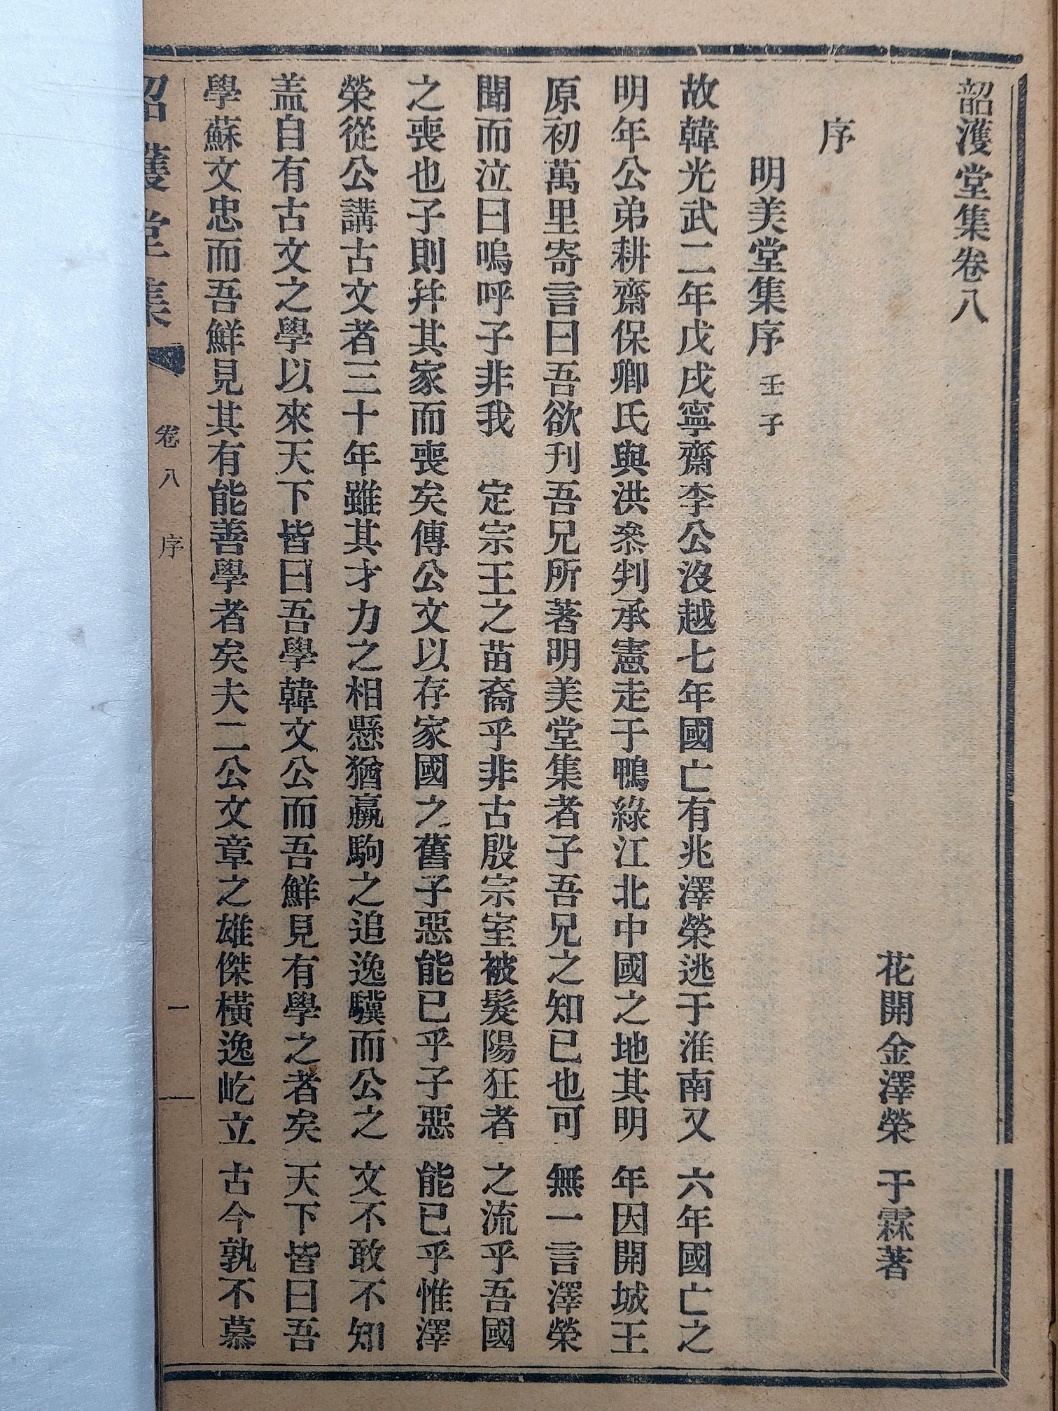 韶濩堂集卷八
花開金澤榮于霖著
序
明美堂集序 壬子
故韓光武二年戊戌寧齋李公沒越七年國亡有兆澤榮逃于淮南又六年國亡之
明年公弟耕齋保卿氏與洪叅判承憲走于鴨綠江北中國之地其明年因開城王
原初萬里寄言曰吾欲刊吾兄所著明美堂集者子吾兄之知已也可無一言澤榮
聞而泣曰嗚呼子非我 定宗王之苗裔乎非古殷宗室被髮陽狂者之流乎吾國
之喪也子則幷其家而喪矣傳公文以存家國之舊子惡能已乎子惡能已乎惟澤
榮從公講古文者三十年雖其才力之相懸猶羸駒之追逸驥而公之文不敢不知
盖自有古文之學以來天下皆曰吾學韓文公而吾鮮見有學之者矣天下皆曰吾
學蘇文忠而吾鮮見其有能善學者矣夫二公文章之雄傑橫逸屹立古今孰不慕
韶濩堂集 卷八 序 一